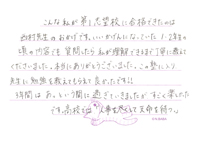 こんな私が第1志望校に合格できたのは
西村先生のおかげです。いいかげんになっていた1・2年の
頃の内容でも質問したら私が理解できるまで丁寧に教えて
くださいました。本当にありがとうございました。この塾に入り
先生に勉強を教えてもらえて良かったです!!
3年間はあっという間に過ぎていきましたがすごく楽しかった
です。高校では「人事を尽くして天命を待つ。」